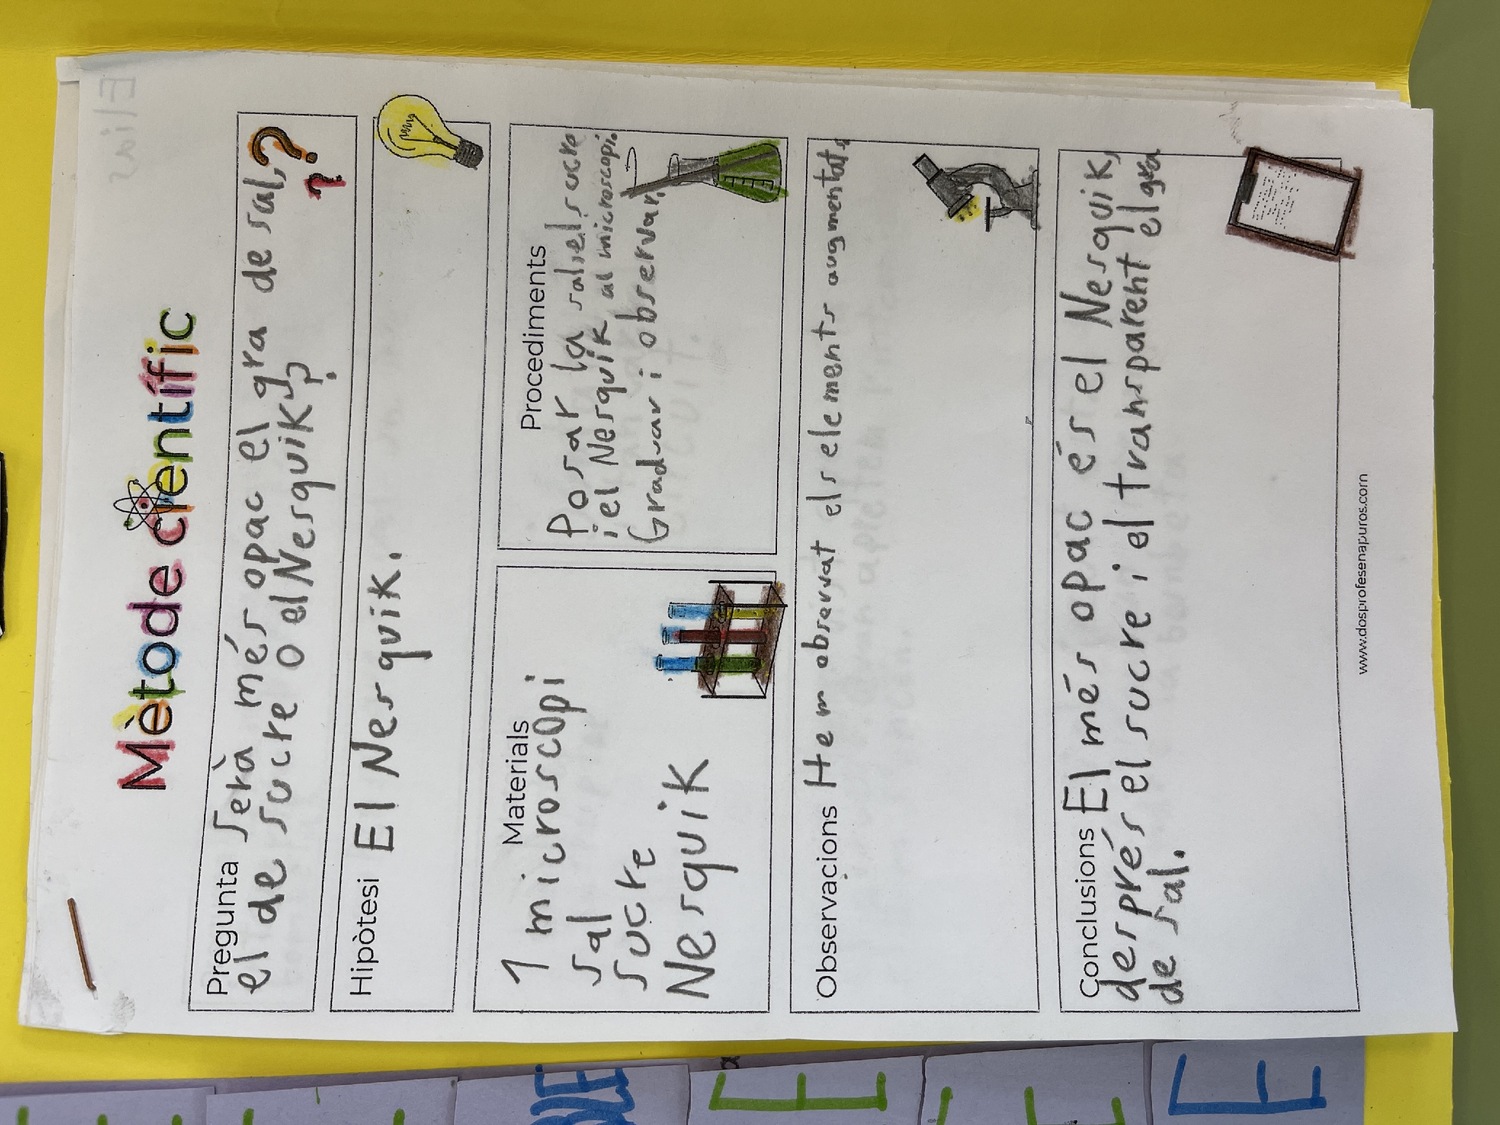 Elias
Mètode científic
Pregunta serà més opac el gra de sal,
el de sucre o el Nesquik?
Hipòtesi El Nesquik.
Materials
1 microscopi
sal
sucre
Nesquik
Procediments
Posar la sal, el sucre
i el Nesquik al microscopi.
Graduar i observar.
Observacions Hem observat els elements augmentats
Conclusions El més opac és el Nesquik,
després el sucre i el transparent el gra
de sal.
www.dosprofesenapuros.com